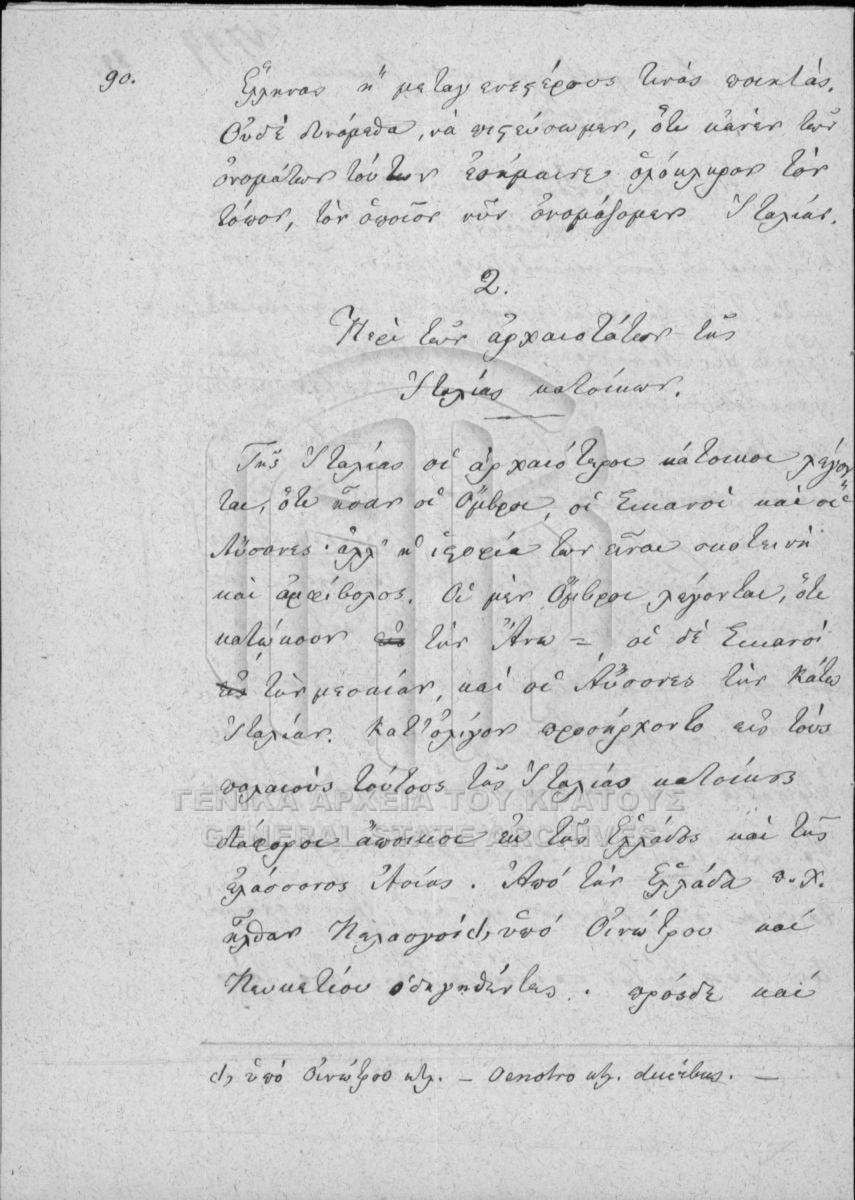 90.
Ἕλληνας ἢ μεταγενεστέρους τινὰς ποιητάς.
Οὐδὲ δυνάμεθα, νὰ πιστεύσωμεν, ὅτι κᾀνὲν τῶν
ὀνομάτων τούτων ἐσήμαινε ὁλόκληρον τὸν
τόπον, τὸν ὁποῖον νῦν ὀνομάζομεν Ἰταλίαν.
2.
Περὶ τῶν ἀρχαιοτάτων τῆς
Ἰταλίας κατοίκων.
Τῆς Ἰταλίας οἱ ἀρχαιότεροι κάτοικοι λέγον
ται, ὅτι ἦσαν οἱ Ὄμβροι, οἱ Σικανοὶ καὶ οἱ
Αὔσονες· ἀλλ' ἡ ἱστορία των εἶναι σκοτεινὴ
καὶ ἀμφίβολος. Οἱ μὲν Ὄμβροι λέγονται, ὅτι
κατῴκουν εἰς τὴν Ἄνω =, οἱ δὲ Σικανοὶ
εἰς τὴν μεσαίαν, καὶ οἱ Αὔσονες τὴν Κάτω
Ἰταλίαν. Κατ' ὀλίγον προσήρχοντο εἰς τοὺς
παλαιοὺς τούτους τῆς Ἰταλίας κατοίκους
ΓΕΝΙΚΑ ΑΡΧΕΙΑ ΤΟΥ ΚΡΑΤΟΥΣ
GENERAL STATE ARCHIVES
διάφοροι ἄποικοι ἐκ τῆς Ἑλλάδος καὶ τῆς
ἐλάσσονος Ἀσίας. Ἀπὸ τὴν Ἑλλάδα π.χ.
ἦλθαν Πελασγοὶ d, ὑπὸ Οἰνώτρου καὶ
Πευκετίου ὁδηγηθέντες. πρόσδε καὶ
d, ὑπὸ Οἰνώτρου κτλ. — Oenotro κτλ. ducibus. —